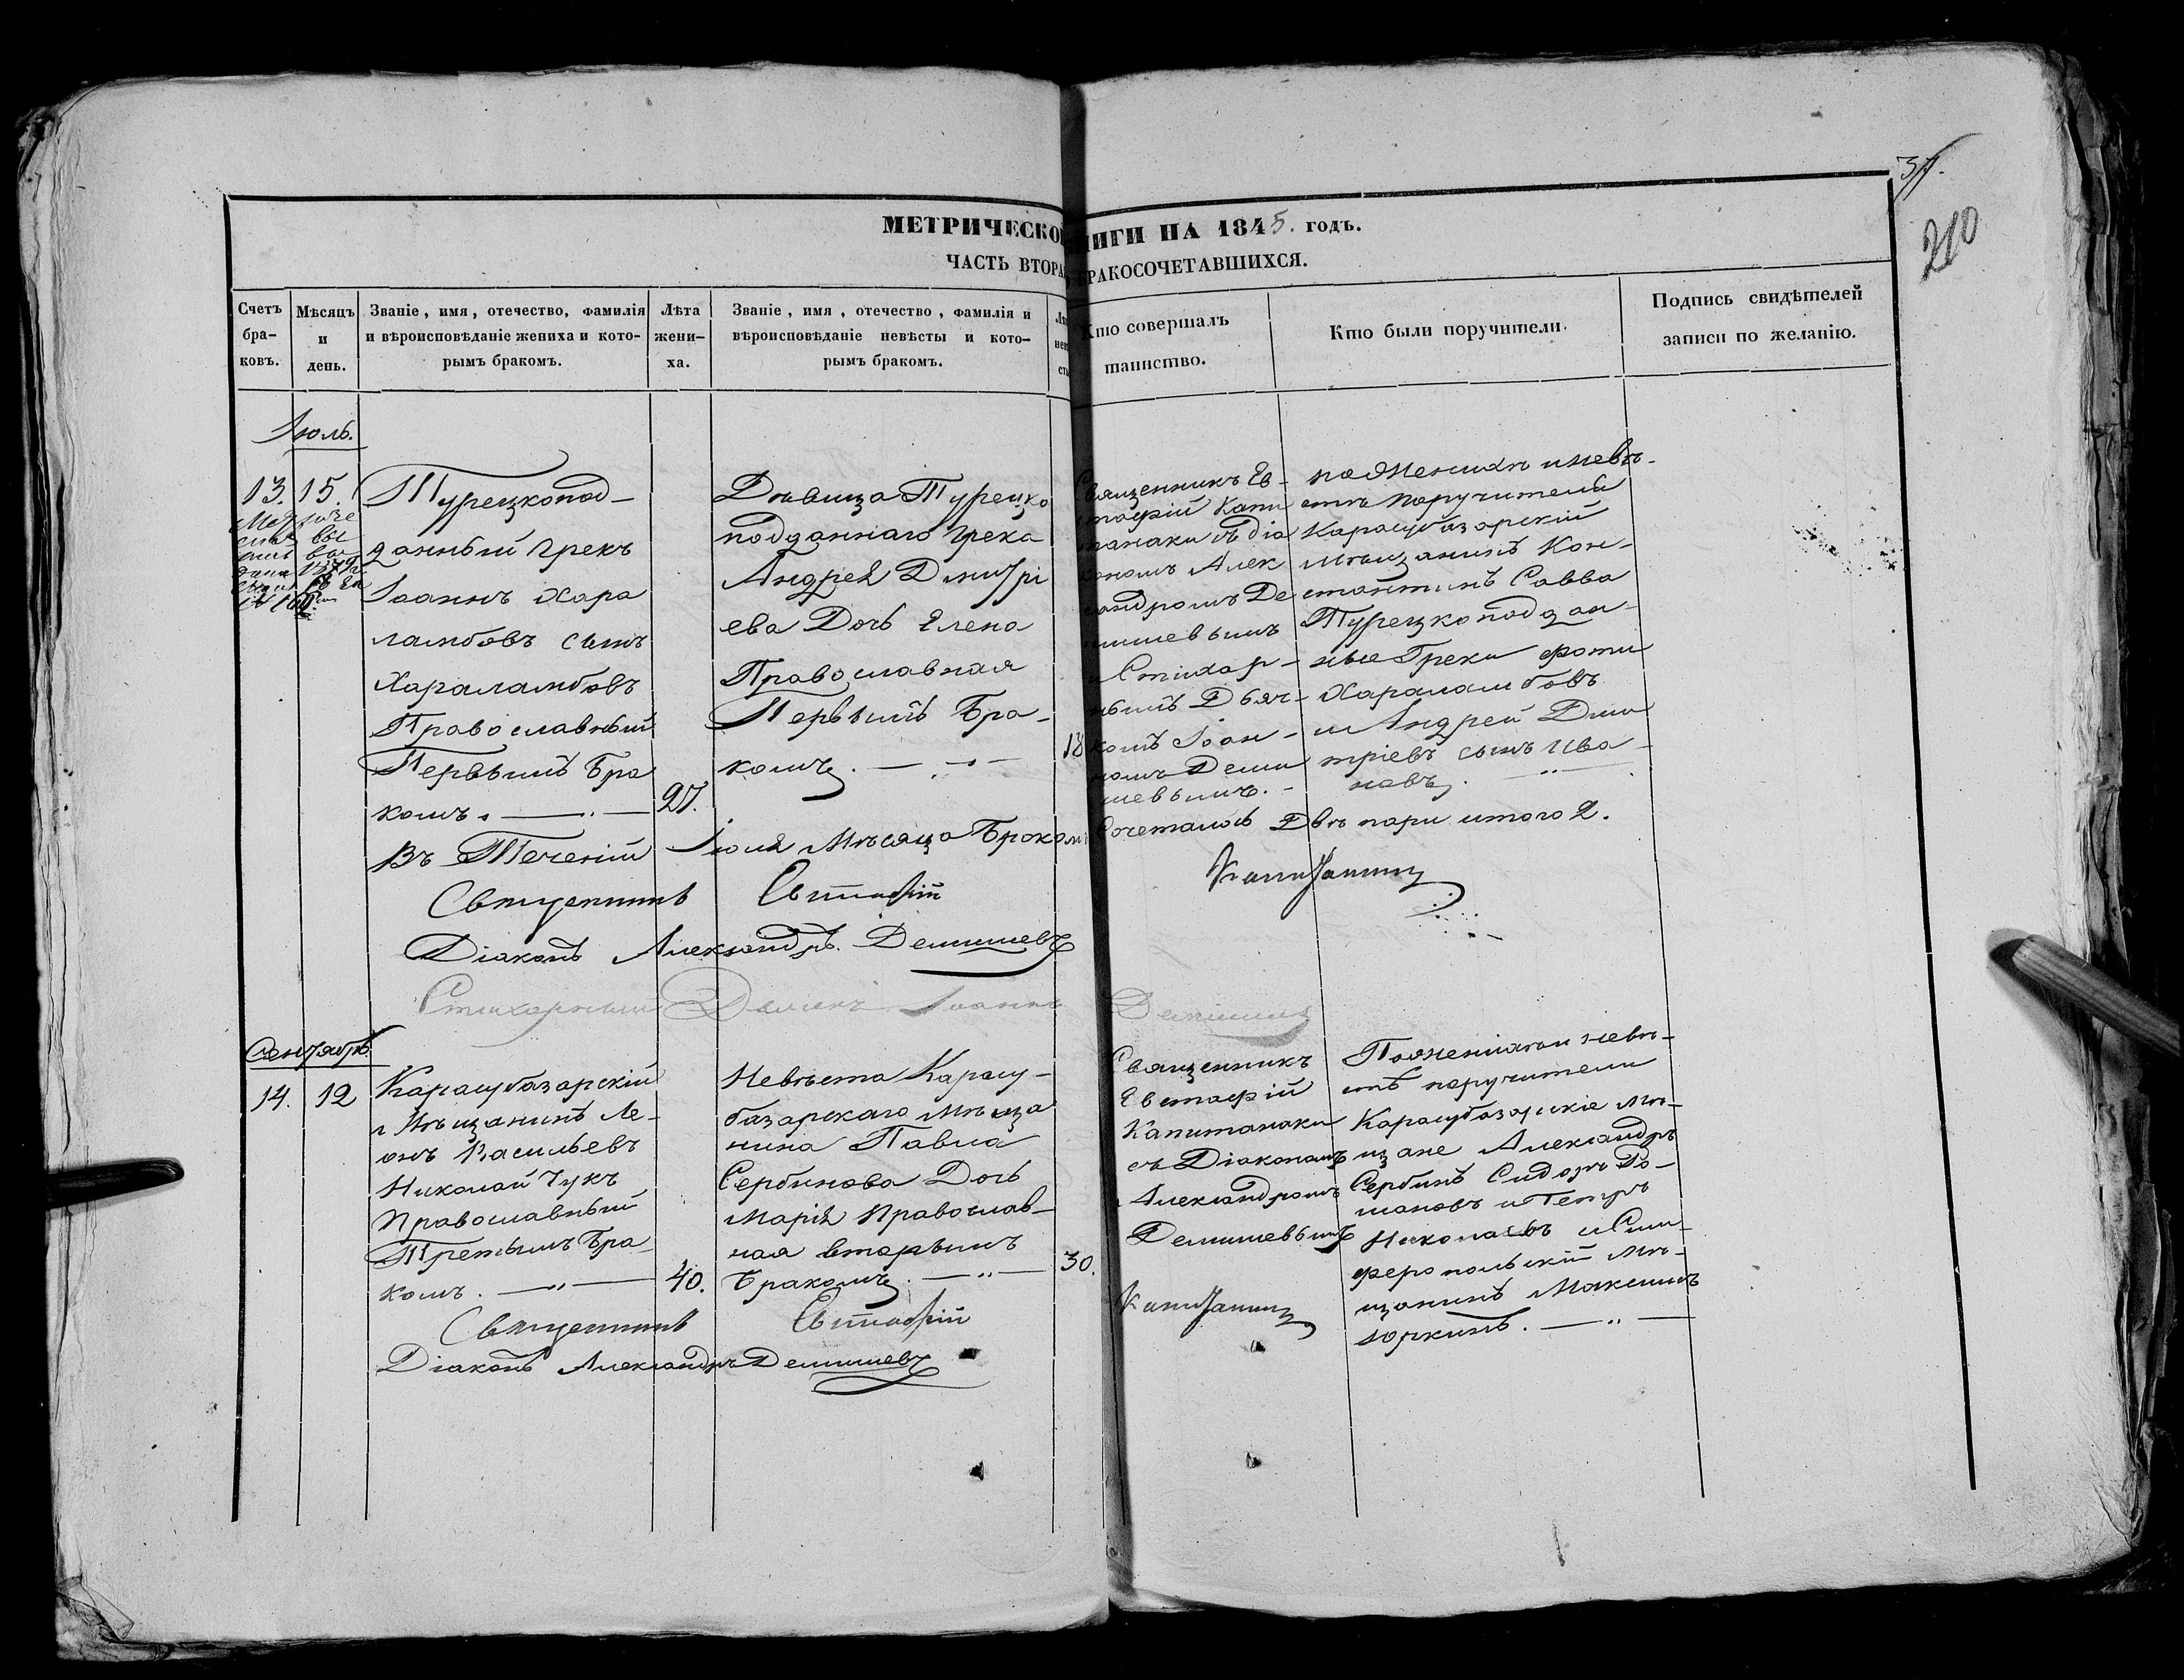 37.
210
МЕТРИЧЕСКО НИГИ НА 1845. годъ.
ЧАСТЬ ВТОРА БРАКОСОЧЕТАВШИХСЯ.
Счетъ
бра-
ковъ.
Мѣсяцъ
и
день.
Званіе, имя, отечество, фамилія
и вѣроисповѣданіе жениха и кото-
рымъ бракомъ.
Лѣта
жени-
ха.
Званіе, имя, отечество, фамилія и
вѣроисповѣданіе невѣсты и кото-
рымъ бракомъ.
Кто совершалъ
таинство.
Кто были поручители.
Подпись свидѣтелей
записи по желанію.
Іюль.
13. 15.
Турецкопод-
данный грекъ
Іоаннъ Хара
ламбовъ сынъ
Хараламбовъ
Православный
Первымъ Бра
комъ.
27.
Дѣвица Турецко
подданнаго грека
Андрея Дмитрі
ева Дочь Елена
Православная
Первымъ Бра-
комъ.
18
Священникъ Ев-
стафій Капи
танаки съ діа
кономъ Алек
сандромъ Де
мишевымъ
и Стихар-
нымъ Дьяч-
комъ Іоан-
номъ Деми
шевымъ.
по Женихѣ и невѣ-
стѣ поручители
Карасубазарскій
Мѣщанинъ Кон-
стантинъ Савва
Турецкоподдан-
ные Греки Фоти
Хараламбовъ
и Андрей Дми
тріевъ сынъ Ива-
новъ.
Въ Теченіи Іюля Мѣсяца Бракомъ Сочеталось Двѣ пары итого 2.
Священникъ Евстафій Капитанаки
Діаконъ Александръ Демишевъ
Стихарный Дьячекъ Іоаннъ Демишевъ
Сентябрь.
14. 12
Карасубазарскій
Мѣщанинъ Ле-
онъ Васильевъ
Николай Чукъ
Православный
Третьимъ Бра-
комъ.
40.
Невѣста Карасу-
базарскаго Мѣща
нина Павла
Сербинова Дочь
Марія Православ-
ная вторымъ
Бракомъ.
30.
Священникъ
Евстафій
Капитанаки
съ Діакономъ
Александромъ
Демишевымъ
По женихѣ и невѣ-
стѣ поручители
Карасубазарскіе Мѣ-
щане Александръ
Сербинъ Сидоръ Ро-
мановъ и Петръ
Николаевъ и Сим-
феропольскій Мѣ-
щанинъ Максимъ
Юркинъ.
Священникъ Евстафій Капитанаки
Діаконъ Александръ Демишевъ